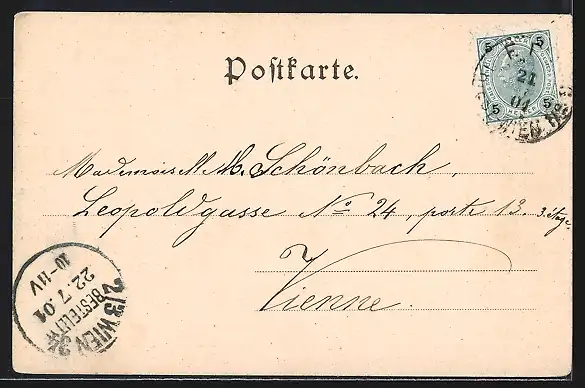 Postkarte.
5 5
21
04
5 5
WIEN
Mademoiselle M. Schönbach,
Leopoldgasse No 24, porte 13. 3. étage.
Vienne.
2/3 WIEN
BESTELLT
22.7.04
10-11V